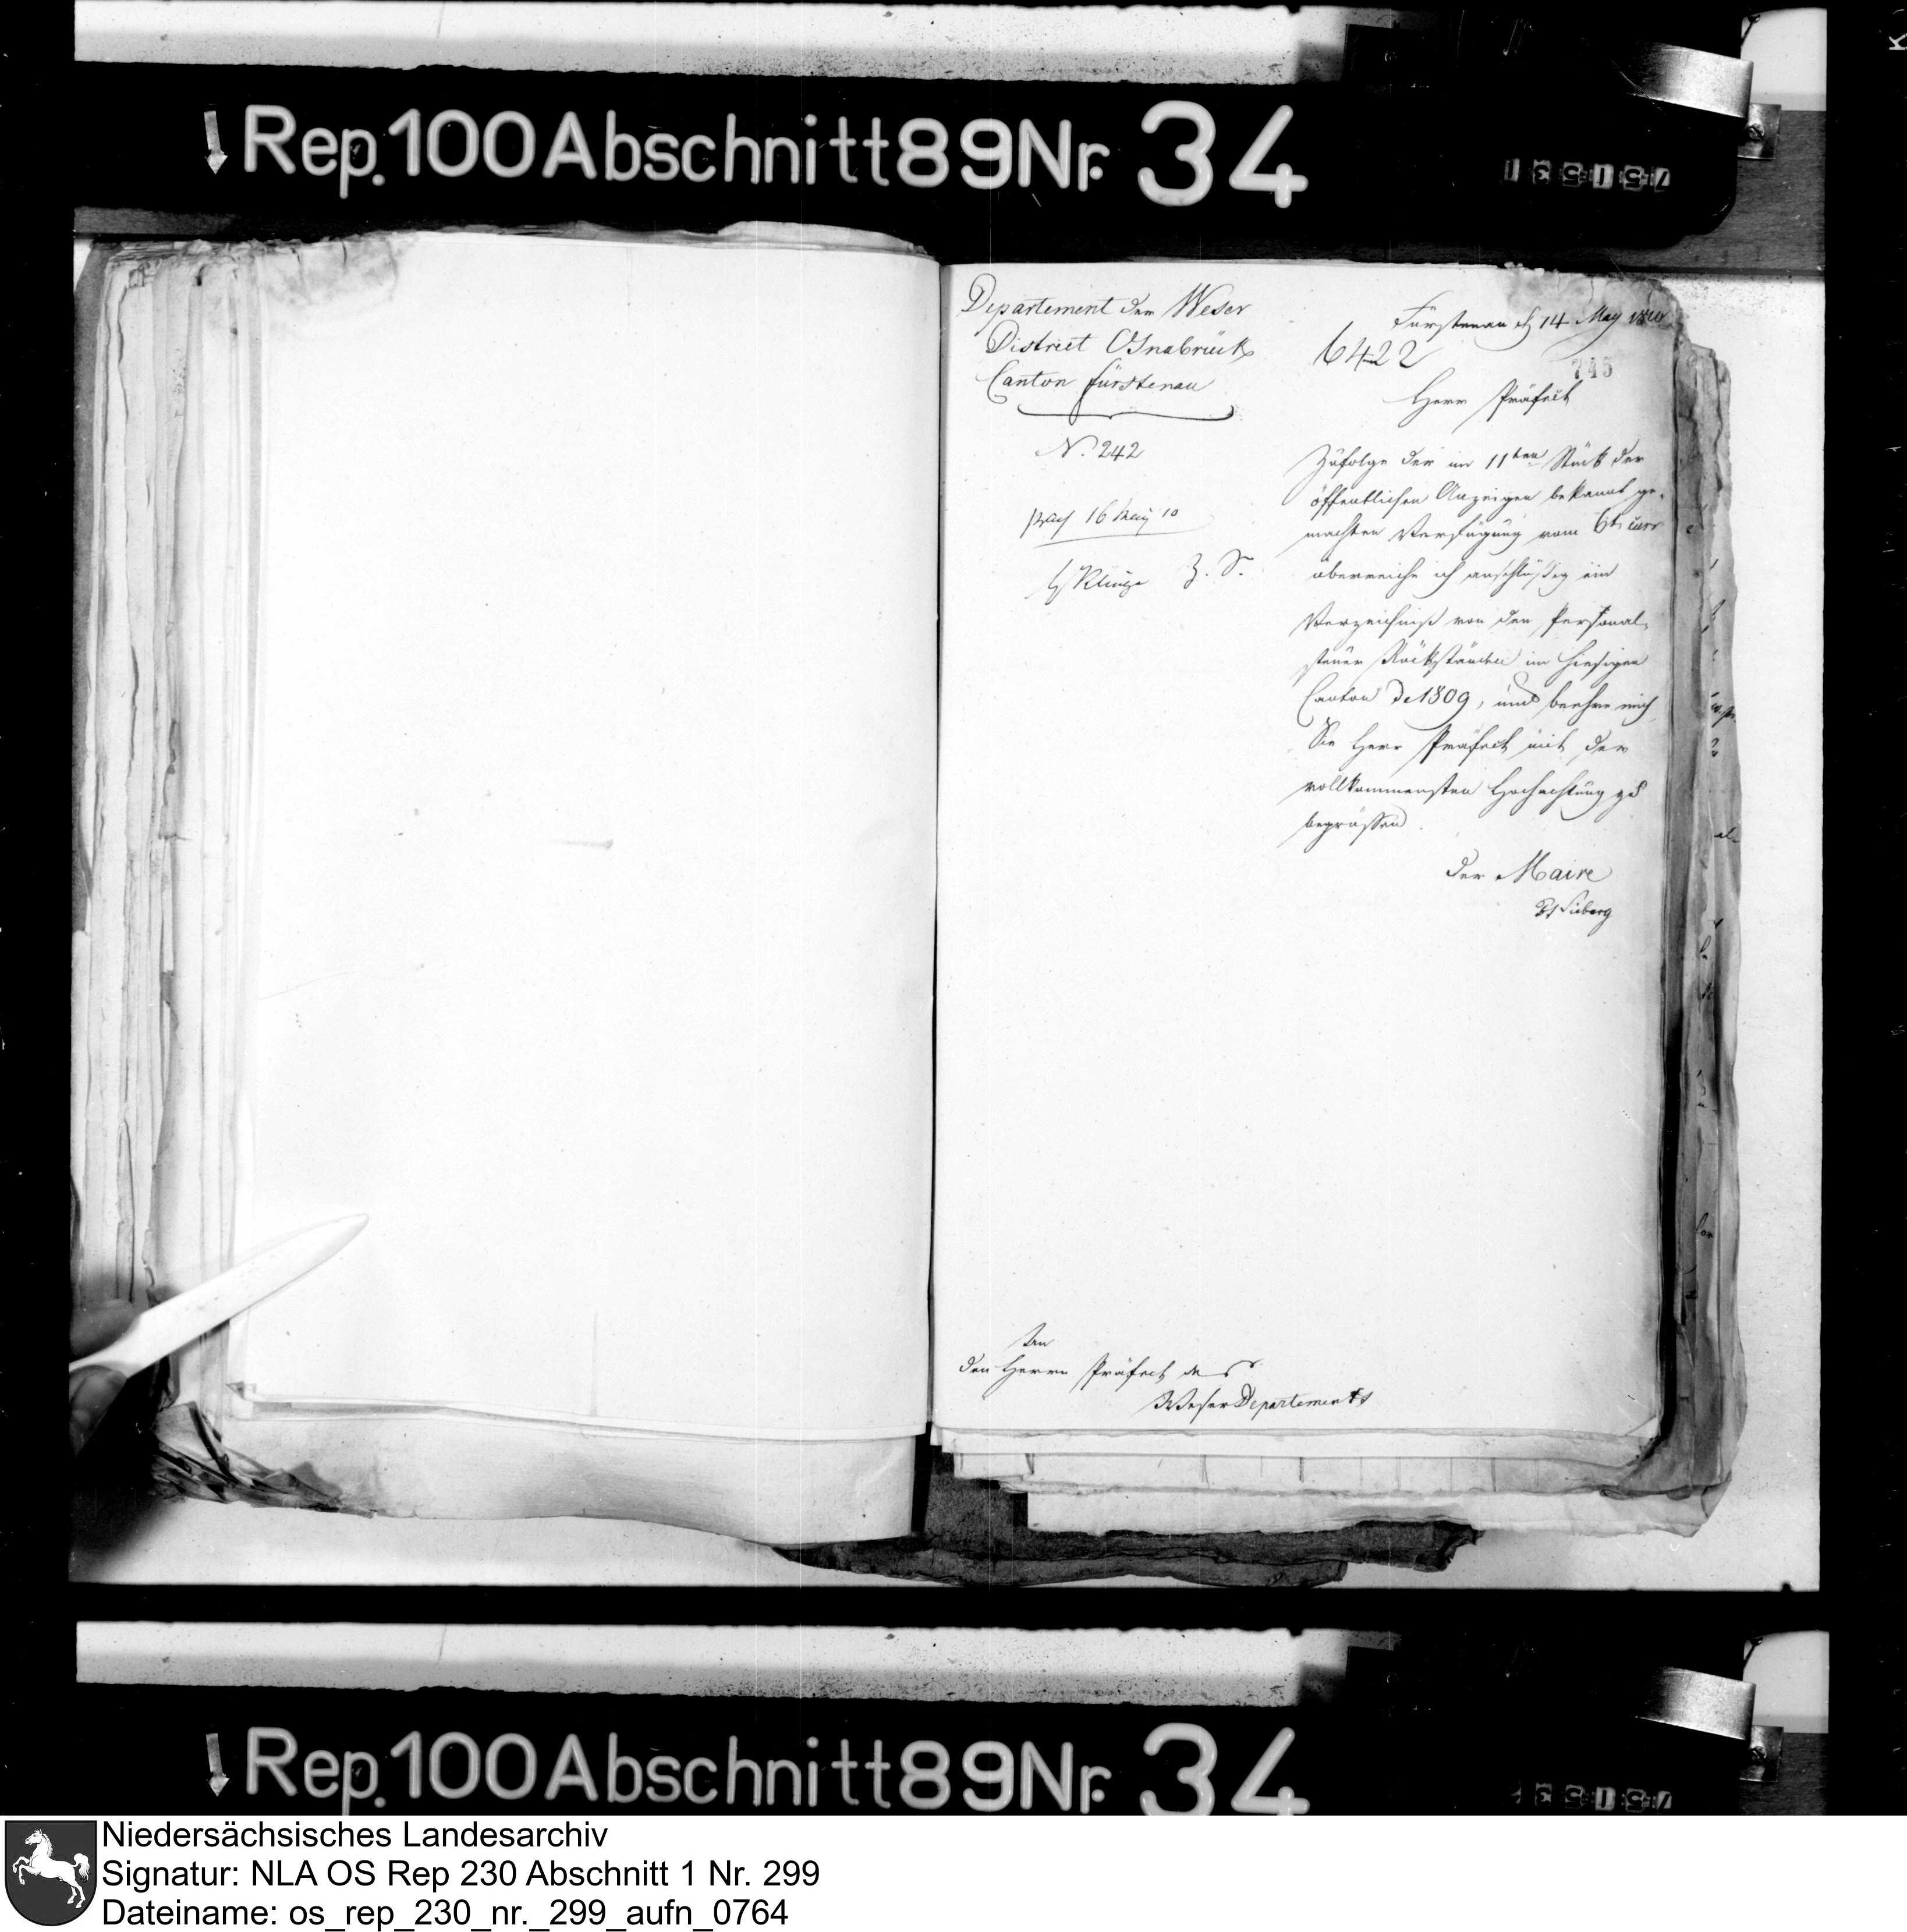 Rep. 100 Abschnitt 89 Nr. 34
Departement der Weser
District Osnabrück
Canton Fürstenau
N. 242
praes 16 May 10
Fürstenau d 14 May 1810
6422
745
Herr Präfect
Zufolge der im 11ten Stück der
öffentlichen Anzeigen bekannt ge-
machten Verfügung vom 6t curr
überreiche ich anschlüßig ein
Verzeichniß von den Personal-
steuer Rückstände im hiesigen
Canton de 1809, und beehre mich
Sie Herr Präfect mit der
vollkommensten Hochachtung zu
begrüssen.
der Maire
An
den Herrn Präfect des
Weser Departements
Rep. 100 Abschnitt 89 Nr. 34
Niedersächsisches Landesarchiv
Signatur: NLA OS Rep 230 Abschnitt 1 Nr. 299
Dateiname: os_rep_230_nr._299_aufn_0764